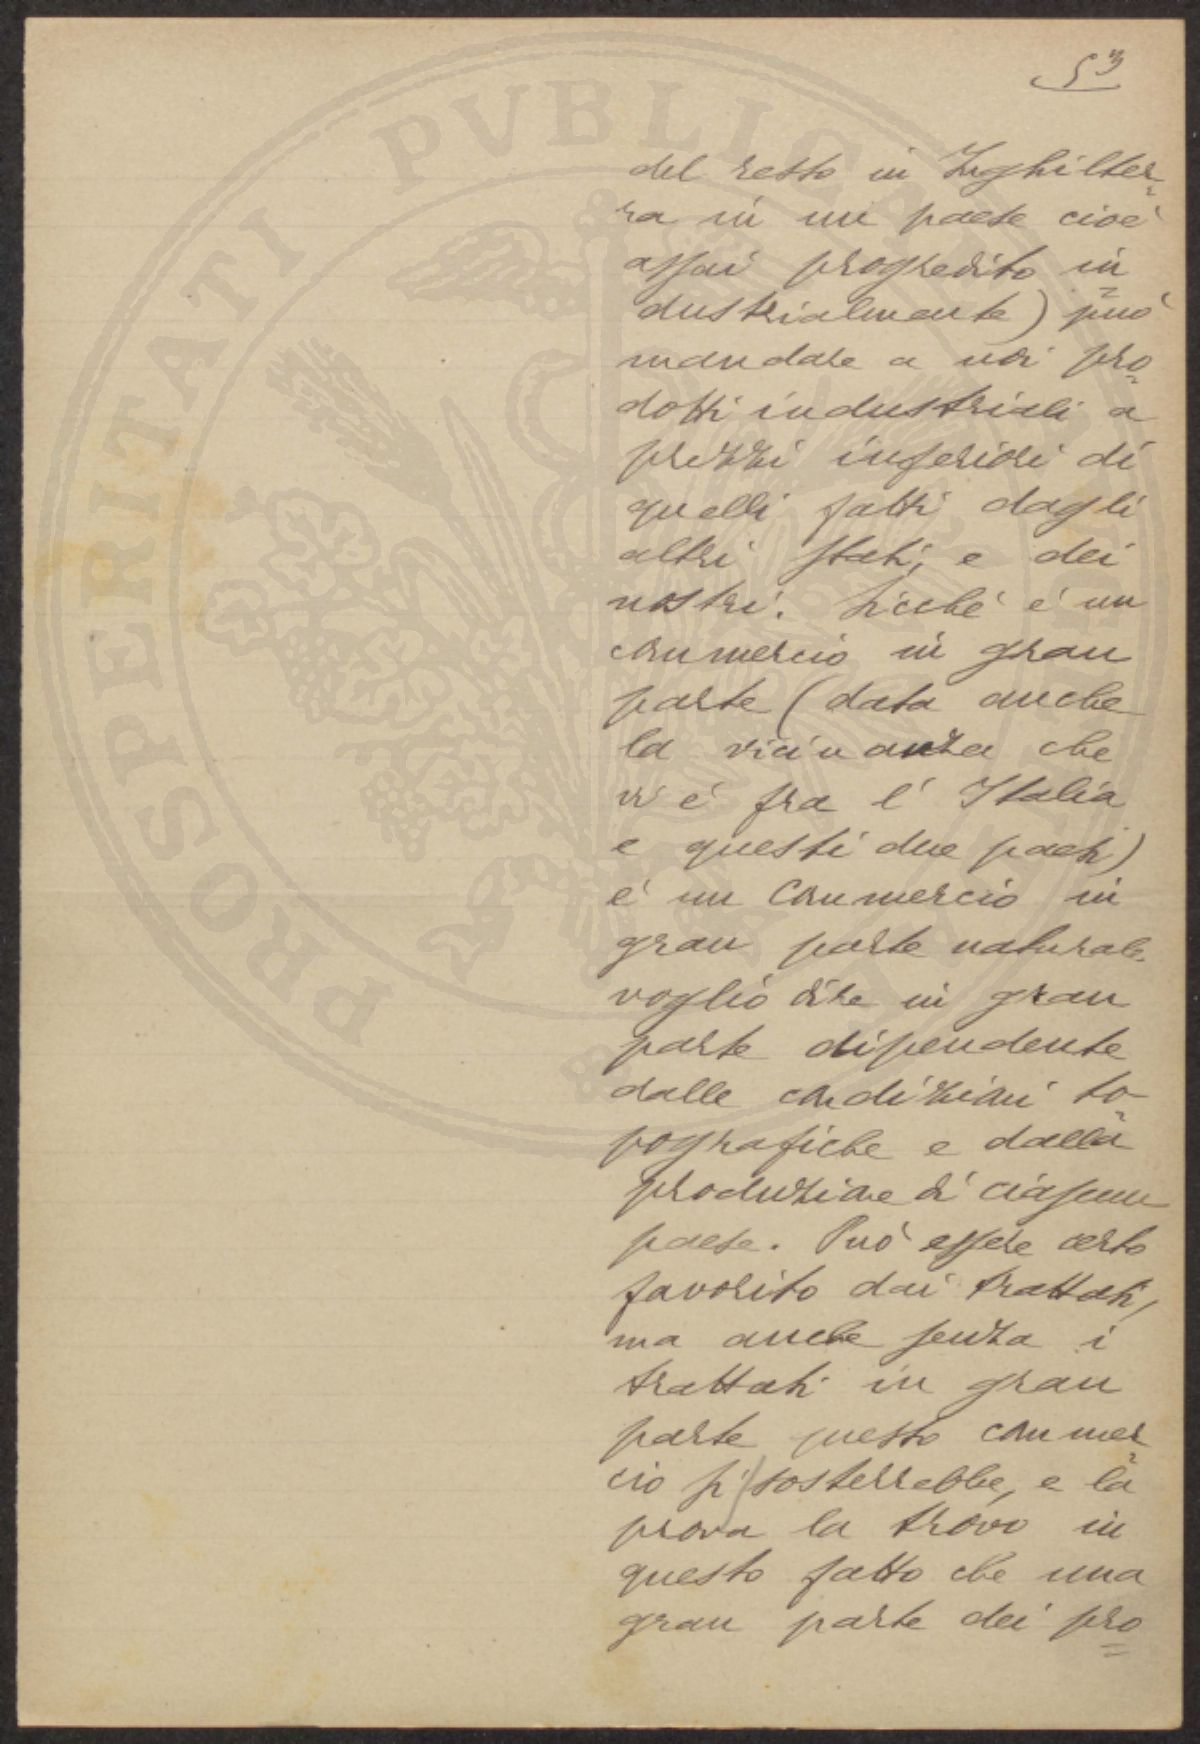 53
del resto in Inghilter=
ra in un paese cioè
assai progredito in=
dustrialmente) può
mandare a noi pro=
dotti industriali a
prezzi inferiori di
quelli fatti dagli
altri stati, e dei
nostri. Sicché é un
commercio in gran
parte (data anche
la vicinanza che
vi é fra l'Italia
e questi due paesi)
é un commercio in
gran parte naturale,
voglio dire in gran
parte dipendente
dalle condizioni to=
pografiche e dalla
produzione di ciascun
paese. Può essere certo
favorito dai trattati,
ma anche senza i
trattati in gran
parte questo commer=
cio si sosterrebbe, e la
prova la trovo in
questo fatto che una
gran parte dei pro=
PROSPERITATI PVBLICAE